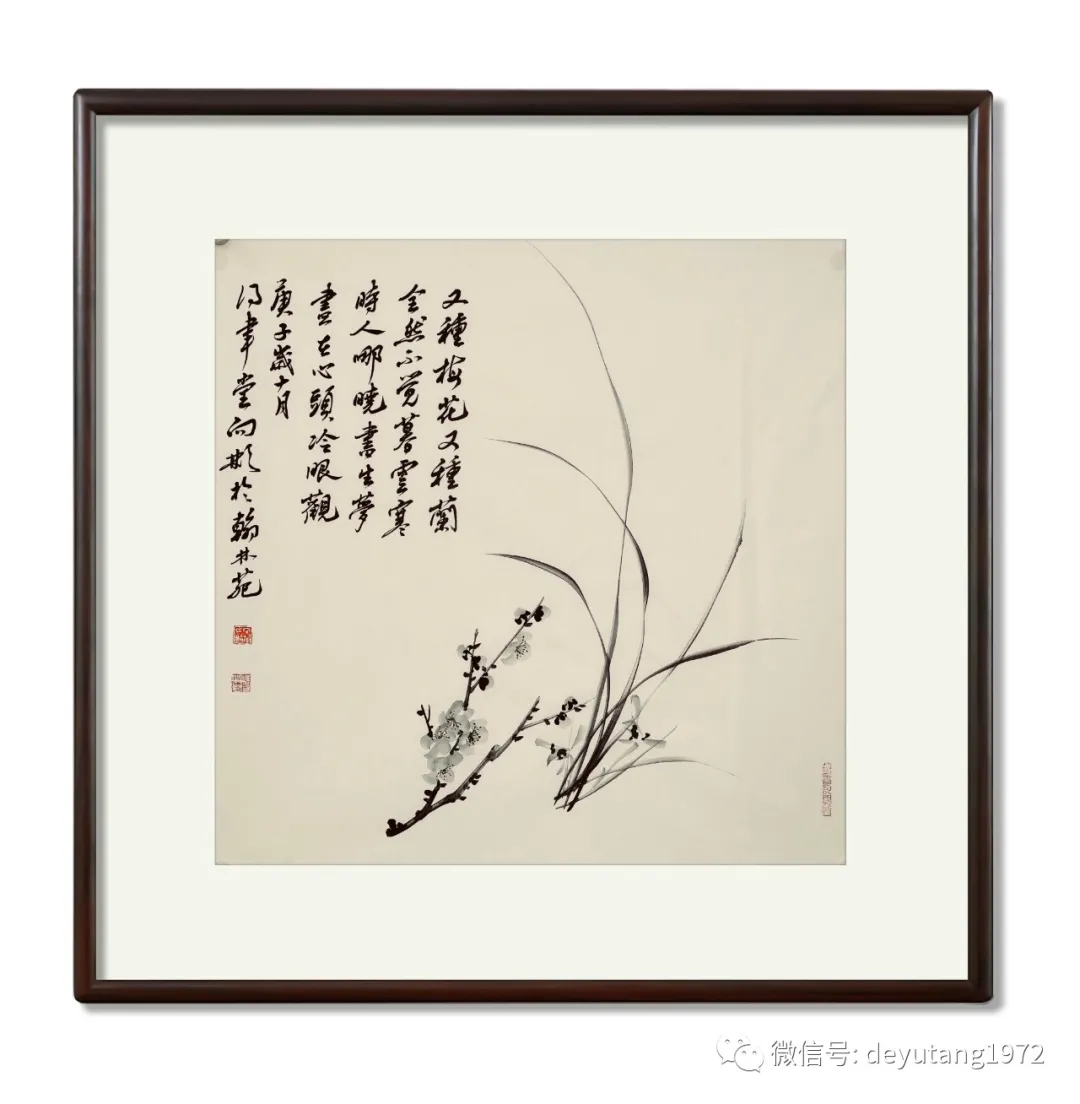 又種梅花又種蘭
全然不覚暮雲寒
時人哪曉書生夢
盡在心頭冷眼觀
庚子歲十月
得聿堂向斯於翰林苑
微信号: deyutang1972